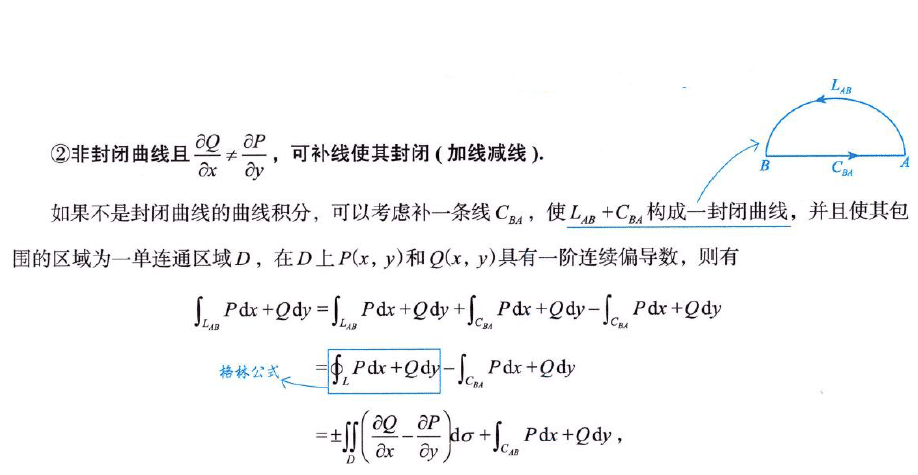 L_{AB}
②非封闭曲线且 ∂Q/∂x ≠ ∂P/∂y ，可补线使其封闭 ( 加线减线 ).
B C_{BA} A
如果不是封闭曲线的曲线积分，可以考虑补一条线 C_{BA} ，使 L_{AB} +C_{BA} 构成一封闭曲线，并且使其包
围的区域为一单连通区域 D ，在 D 上 P(x, y)和 Q(x, y)具有一阶连续偏导数，则有
∫_{L_{AB}} Pdx+Qdy=∫_{L_{AB}} Pdx+Qdy+∫_{C_{BA}} Pdx+Qdy−∫_{C_{BA}} Pdx+Qdy
格林公式 =∮_L Pdx+Qdy−∫_{C_{BA}} Pdx+Qdy
=±∬_D (∂Q/∂x − ∂P/∂y)dσ+∫_{C_{AB}} Pdx+Qdy ，